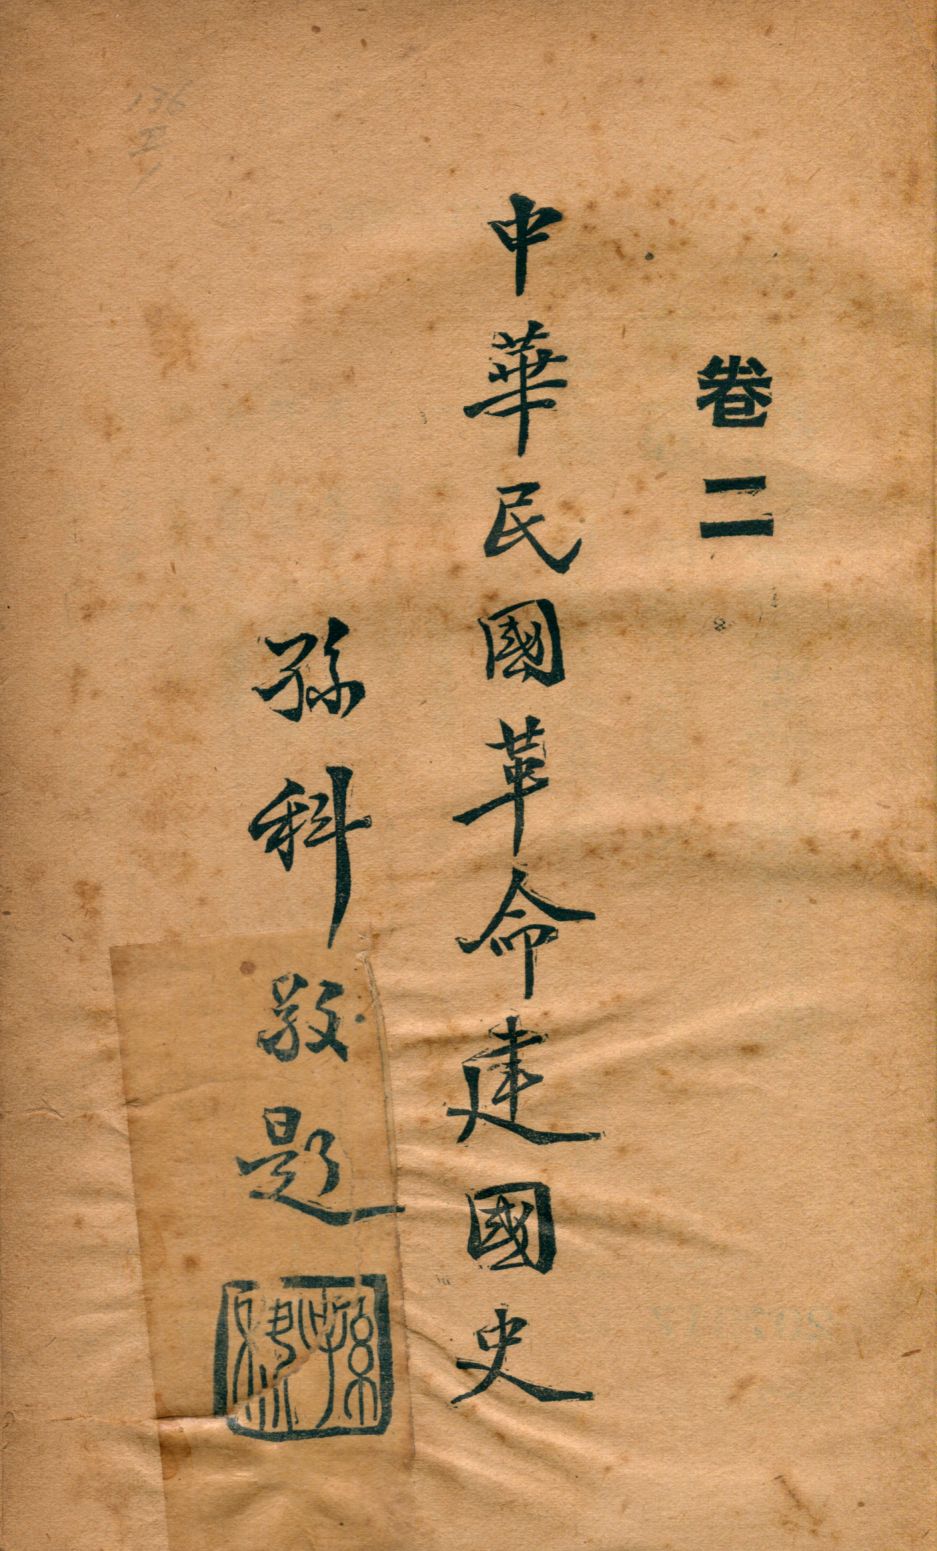 卷二
中華民國革命建國史
孫科敬題
孫科
136